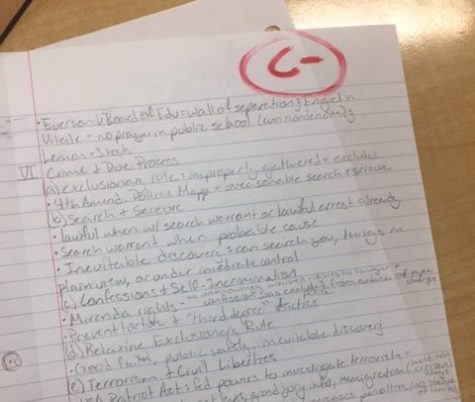 C-
• Everson v Board of Edu = wall of separation; Engel v.
Vitale = no prayer in public school (even nondenom);
Lemon = 3 tests
VI Crime + Due Process
(a) exclusionary rule: improperly gathered = excluded
• 4th Amend. Mapp = unreasonable search + seizure
b) Search + Seizure
• lawful when w/ search warrant or lawful arrest already
• Search warrant when probable cause
• Inevitable discovery: can search you, things in
plain view, or under immediate control
c) Confessions + Self-Incrimination
• Miranda rights
• Prevent torture + "third degree" tactics
(d) Relaxing Exclusionary Rule
• Good faith, public safety, inevitable discovery
(e) Terrorism + Civil Liberties
USA Patriot Act: fed powers to investigate terrorists
taps, info, immigration
penalties